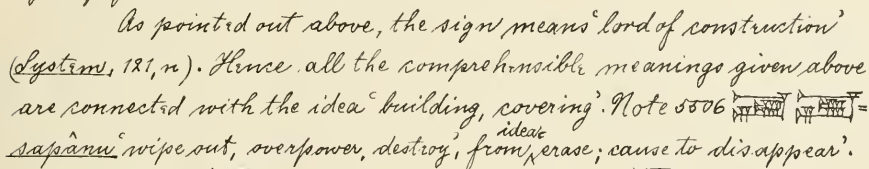 As pointed out above, the sign means ‘lord of construction’
(System, 121, n). Hence all the comprehensible meanings given above
are connected with the idea ‘building, covering’. Note 5506 =
sapânu ‘wipe out, overpower, destroy’, from idea ‘erase; cause to disappear’.